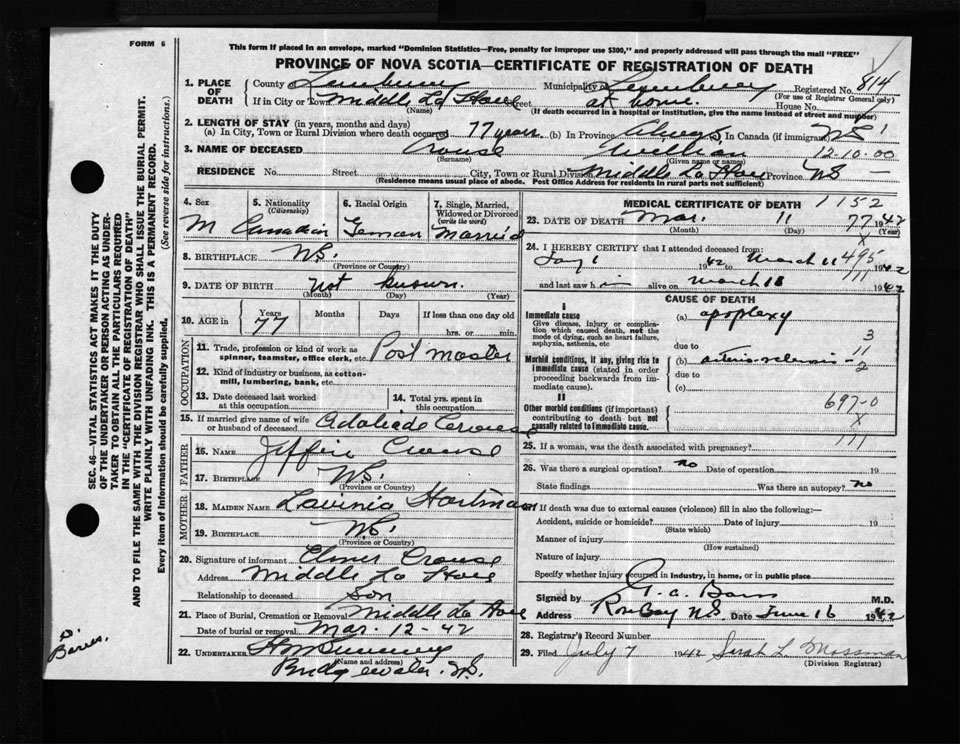 FORM 6
This form if placed in an envelope, marked "Dominion Statistics—Free, penalty for improper use $300," and properly addressed will pass through the mail "FREE"
PROVINCE OF NOVA SCOTIA—CERTIFICATE OF REGISTRATION OF DEATH
1. PLACE OF DEATH County Lunenburg Municipality of Lunenburg Registered No. 814
(For use of Registrar General only)
If in City or Town Middle La Have Street at home. House No.
(Name) (If death occurred in a hospital or institution, give the name instead of street and number)
2. LENGTH OF STAY (in years, months and days)
(a) In City, Town or Rural Division where death occurred 77 years (b) In Province Always in Canada (if immigrant) N.S.
3. NAME OF DECEASED Crouse William 12-10-00
(Surname) (Given name or names)
RESIDENCE No. Street City, Town or Rural Division Middle La Have Province N.S.
(Residence means usual place of abode. Post Office Address for residents in rural parts not sufficient)
4. Sex 5. Nationality (Citizenship) 6. Racial Origin 7. Single, Married, Widowed or Divorced (write the word)
M Canadian German Married
8. BIRTHPLACE N.S.
(Province or Country)
9. DATE OF BIRTH Not known.
(Month) (Day) (Year)
10. AGE in Years Months Days If less than one day old
77 hrs. or min.
OCCUPATION
11. Trade, profession or kind of work as spinner, teamster, office clerk, etc. Post master
12. Kind of industry or business, as cotton-mill, lumbering, bank, etc.
13. Date deceased last worked at this occupation
14. Total yrs. spent in this occupation
15. If married give name of wife or husband of deceased Adaliade Crouse
FATHER
16. NAME Crouse
17. BIRTHPLACE N.S.
(Province or Country)
MOTHER
18. MAIDEN NAME Lavinia Hartman
19. BIRTHPLACE N.S.
(Province or Country)
20. Signature of informant Elmer Crouse
Address Middle La Have
Relationship to deceased Son
21. Place of Burial, Cremation or Removal Middle La Have
Date of burial or removal Mar. 12-42
22. UNDERTAKER
(Name and address)
Bridgewater. N.S.
MEDICAL CERTIFICATE OF DEATH 1152
23. DATE OF DEATH Mar. 11 77 1942
(Month) (Day) (Year)
X
24. I HEREBY CERTIFY that I attended deceased from:
1942 to March 11 495 1942
and last saw him alive on March 11 1942
CAUSE OF DEATH
I
Immediate cause (a) apoplexy
Give disease, injury or complication which caused death, not the mode of dying, such as heart failure, asphyxia, asthenia, etc
due to
3
11
Morbid conditions, if any, giving rise to immediate cause (stated in order proceeding backwards from immediate cause).
(b) arterio-sclerosis -2
due to
(c)
II
Other morbid conditions (if important) contributing to death but not causally related to immediate cause.
697-0
X
111
25. If a woman, was the death associated with pregnancy?
26. Was there a surgical operation? no Date of operation 19
State findings Was there an autopsy? no
27. If death was due to external causes (violence) fill in also the following:—
Accident, suicide or homicide? Date of injury 19
(State which)
Manner of injury
(How sustained)
Nature of injury
Specify whether injury occupied in industry, in home, or in public place
Signed by M.D.
Address Rose Bay N.S. Date June 16 1942
28. Registrar's Record Number
29. Filed July 7 1942 Sarah L. Mossman
(Division Registrar)
SEC. 46—VITAL STATISTICS ACT MAKES IT THE DUTY
OF THE UNDERTAKER OR PERSON ACTING AS UNDER-
TAKER TO OBTAIN ALL THE PARTICULARS REQUIRED
IN THE "CERTIFICATE OF REGISTRATION OF DEATH"
AND TO FILE THE SAME WITH THE DIVISION REGISTRAR WHO SHALL ISSUE THE BURIAL PERMIT.
WRITE PLAINLY WITH UNFADING INK. THIS IS A PERMANENT RECORD.
Every item of Information should be carefully supplied. (See reverse side for instructions.)